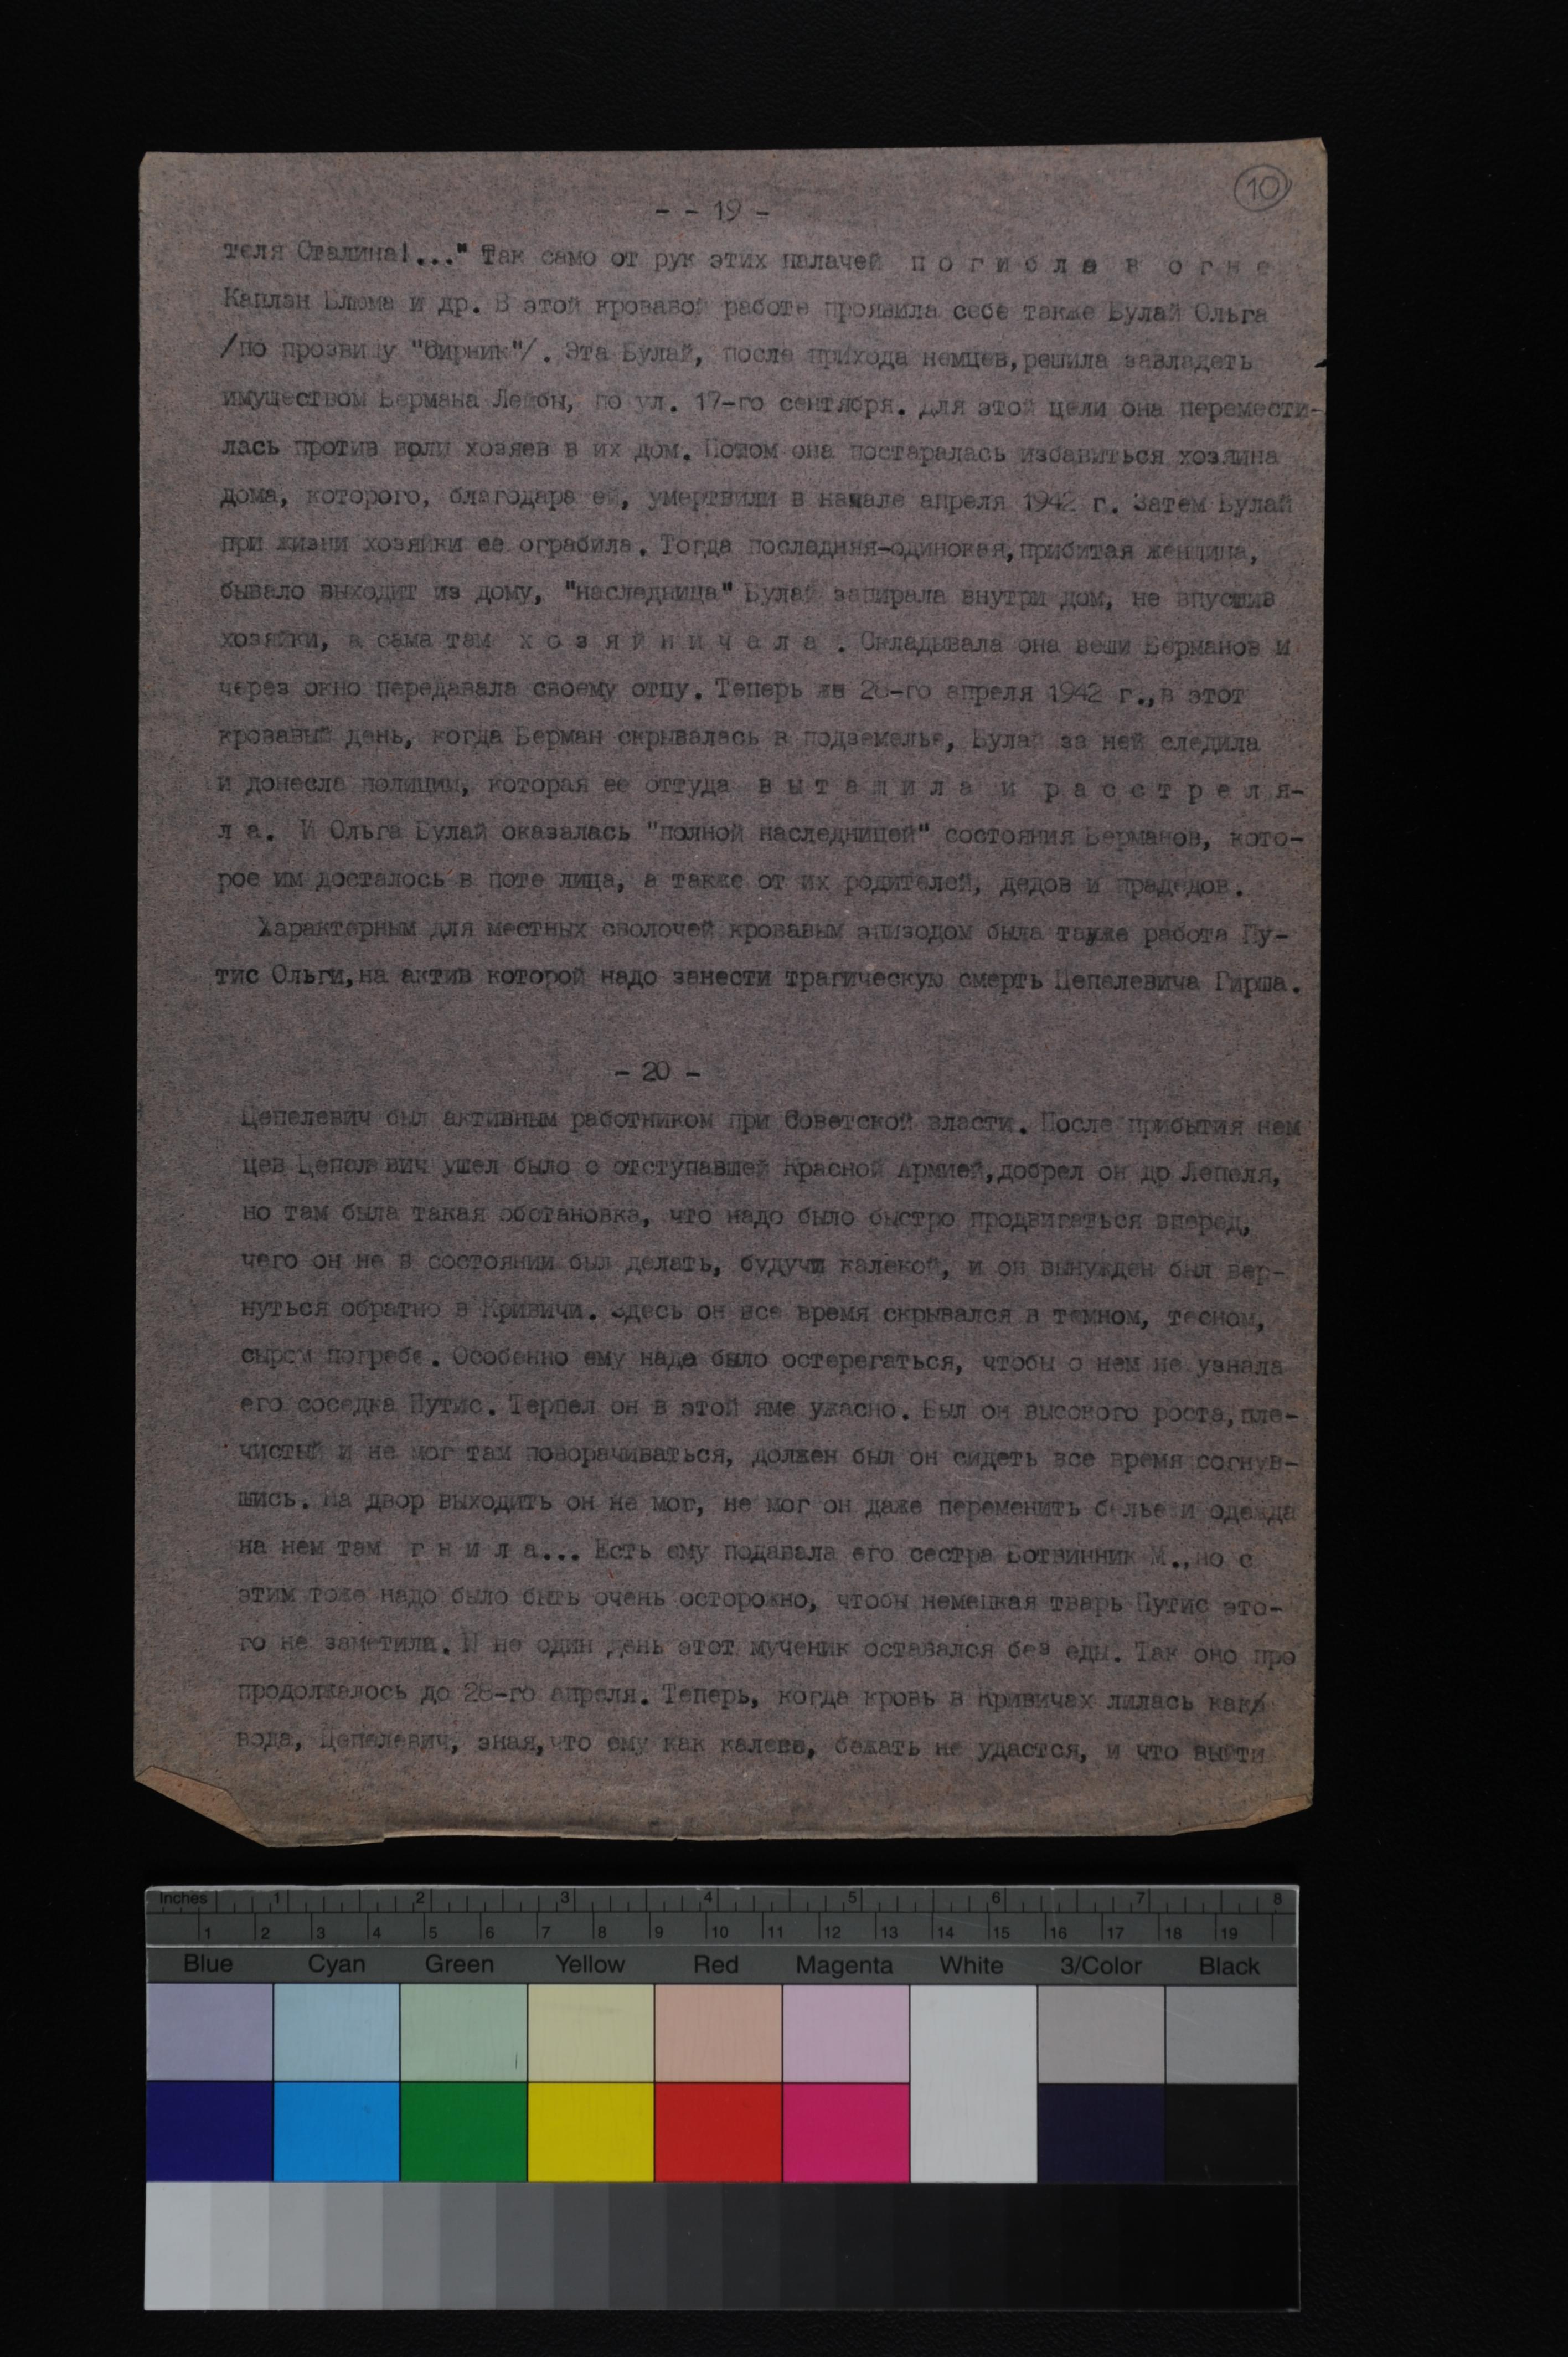 10
- - 19 -
теля Сталина!..." Так само от рук этих палачей п о г и б л а в о г н е
Каплан Блюма и др. В этой кровавой работе проявила себе также Булай Ольга
/по прозвищу "бирник"/. Эта Булай, после прихода немцев,решила завладеть
имуществом Бермана Лейбы, по ул. 17-го сентября. Для этой цели она перемести-
лась против воли хозяев в их дом. Потом она постаралась избавиться хозяина
дома, которого, благодаря ей, умертвили в начале апреля 1942 г. Затем Булай
при жизни хозяйки ее ограбила. Тогда последняя-одинокая,прибитая женщина,
бывало выходит из дому, "наследница" Булай запирала внутри дом, не впустив
хозяйки, а сама там х о з я й н и ч а л а . Складывала она вещи Берманов и
через окно передавала своему отцу. Теперь же 28-го апреля 1942 г.,в этот
кровавый день, когда Берман скрывалась в подземелье, Булай за ней следила
и донесла полиции, которая ее оттуда в ы т а щ и л а и р а с с т р е л я-
л а. И Ольга Булай оказалась "полной наследницей" состояния Берманов, кото-
рое им досталось в поте лица, а также от их родителей, дедов и прадедов.
Характерным для местных сволочей кровавым эпизодом была также работа Пу-
тис Ольги,на актив которой надо занести трагическую смерть Цепелевича Гирша.
- 20 -
Цепелевич был активным работником при Советской власти. После прибытия нем
цев Цепелевич ушел было с отступавшей Красной Армией,добрел он др Лепеля,
но там была такая обстановка, что надо было быстро продвигаться вперед,
чего он не в состоянии был делать, будучи калекой, и он вынужден был вер-
нуться обратно в Кривичи. Здесь он все время скрывался в темном, тесном,
сыром погребе. Особенно ему надо было остерегаться, чтобы о нем не узнала
его соседка Путис. Терпел он в этой яме ужасно. Был он высокого роста,пле-
чистый и не мог там поворачиваться, должен был он сидеть все время согнув-
шись. На двор выходить он не мог, не мог он даже переменить белье и одежда
на нем там г н и л а... Есть ему подавала его сестра Ботвинник М.,но с
этим тоже надо было быть очень осторожно, чтобы немецкая тварь Путис это-
го не заметила. И не один день этот мученик оставался без еды. Так оно про
продолжалось до 28-го апреля. Теперь, когда кровь в Кривичах лилась как
вода, Цепелевич, зная,что ему как калеке, бежать не удастся, и что выйти
Inches 1 2 3 4 5 6 7 8
1 2 3 4 5 6 7 8 9 10 11 12 13 14 15 16 17 18 19
Blue Cyan Green Yellow Red Magenta White 3/Color Black